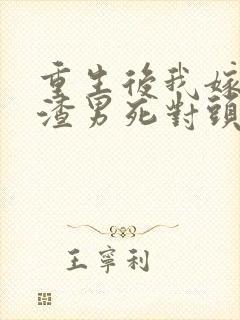 重生後我嫁
渣男死對頭
王寧利